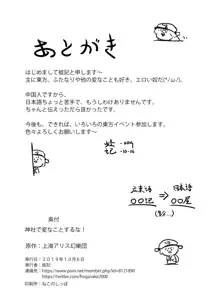 あとがき
はじめまして蛙記と申します～
主に東方、ふたなりや他の変なことも好き。エロい奴だ(*/ω/)。
中国人ですから、
日本語ちょっと苦手で、もうしわけありませんです。
ちゃんと伝えったら良かったです。
今後も、できれば、いろいろの東方イベント参加します。
色々よろしくお願いします～
蛙
記
2019
10.16
立英語 → 日本語
○○記 ○○屋
奥付
神社で変なことするな！
原作：上海アリス幻樂団
発行日：2019年10月6日
発行者：蛙記
連絡先：https://www.pixiv.net/member.php?id=8121890
https://twitter.com/frogynako2000
印刷所：ねこのしっぽ